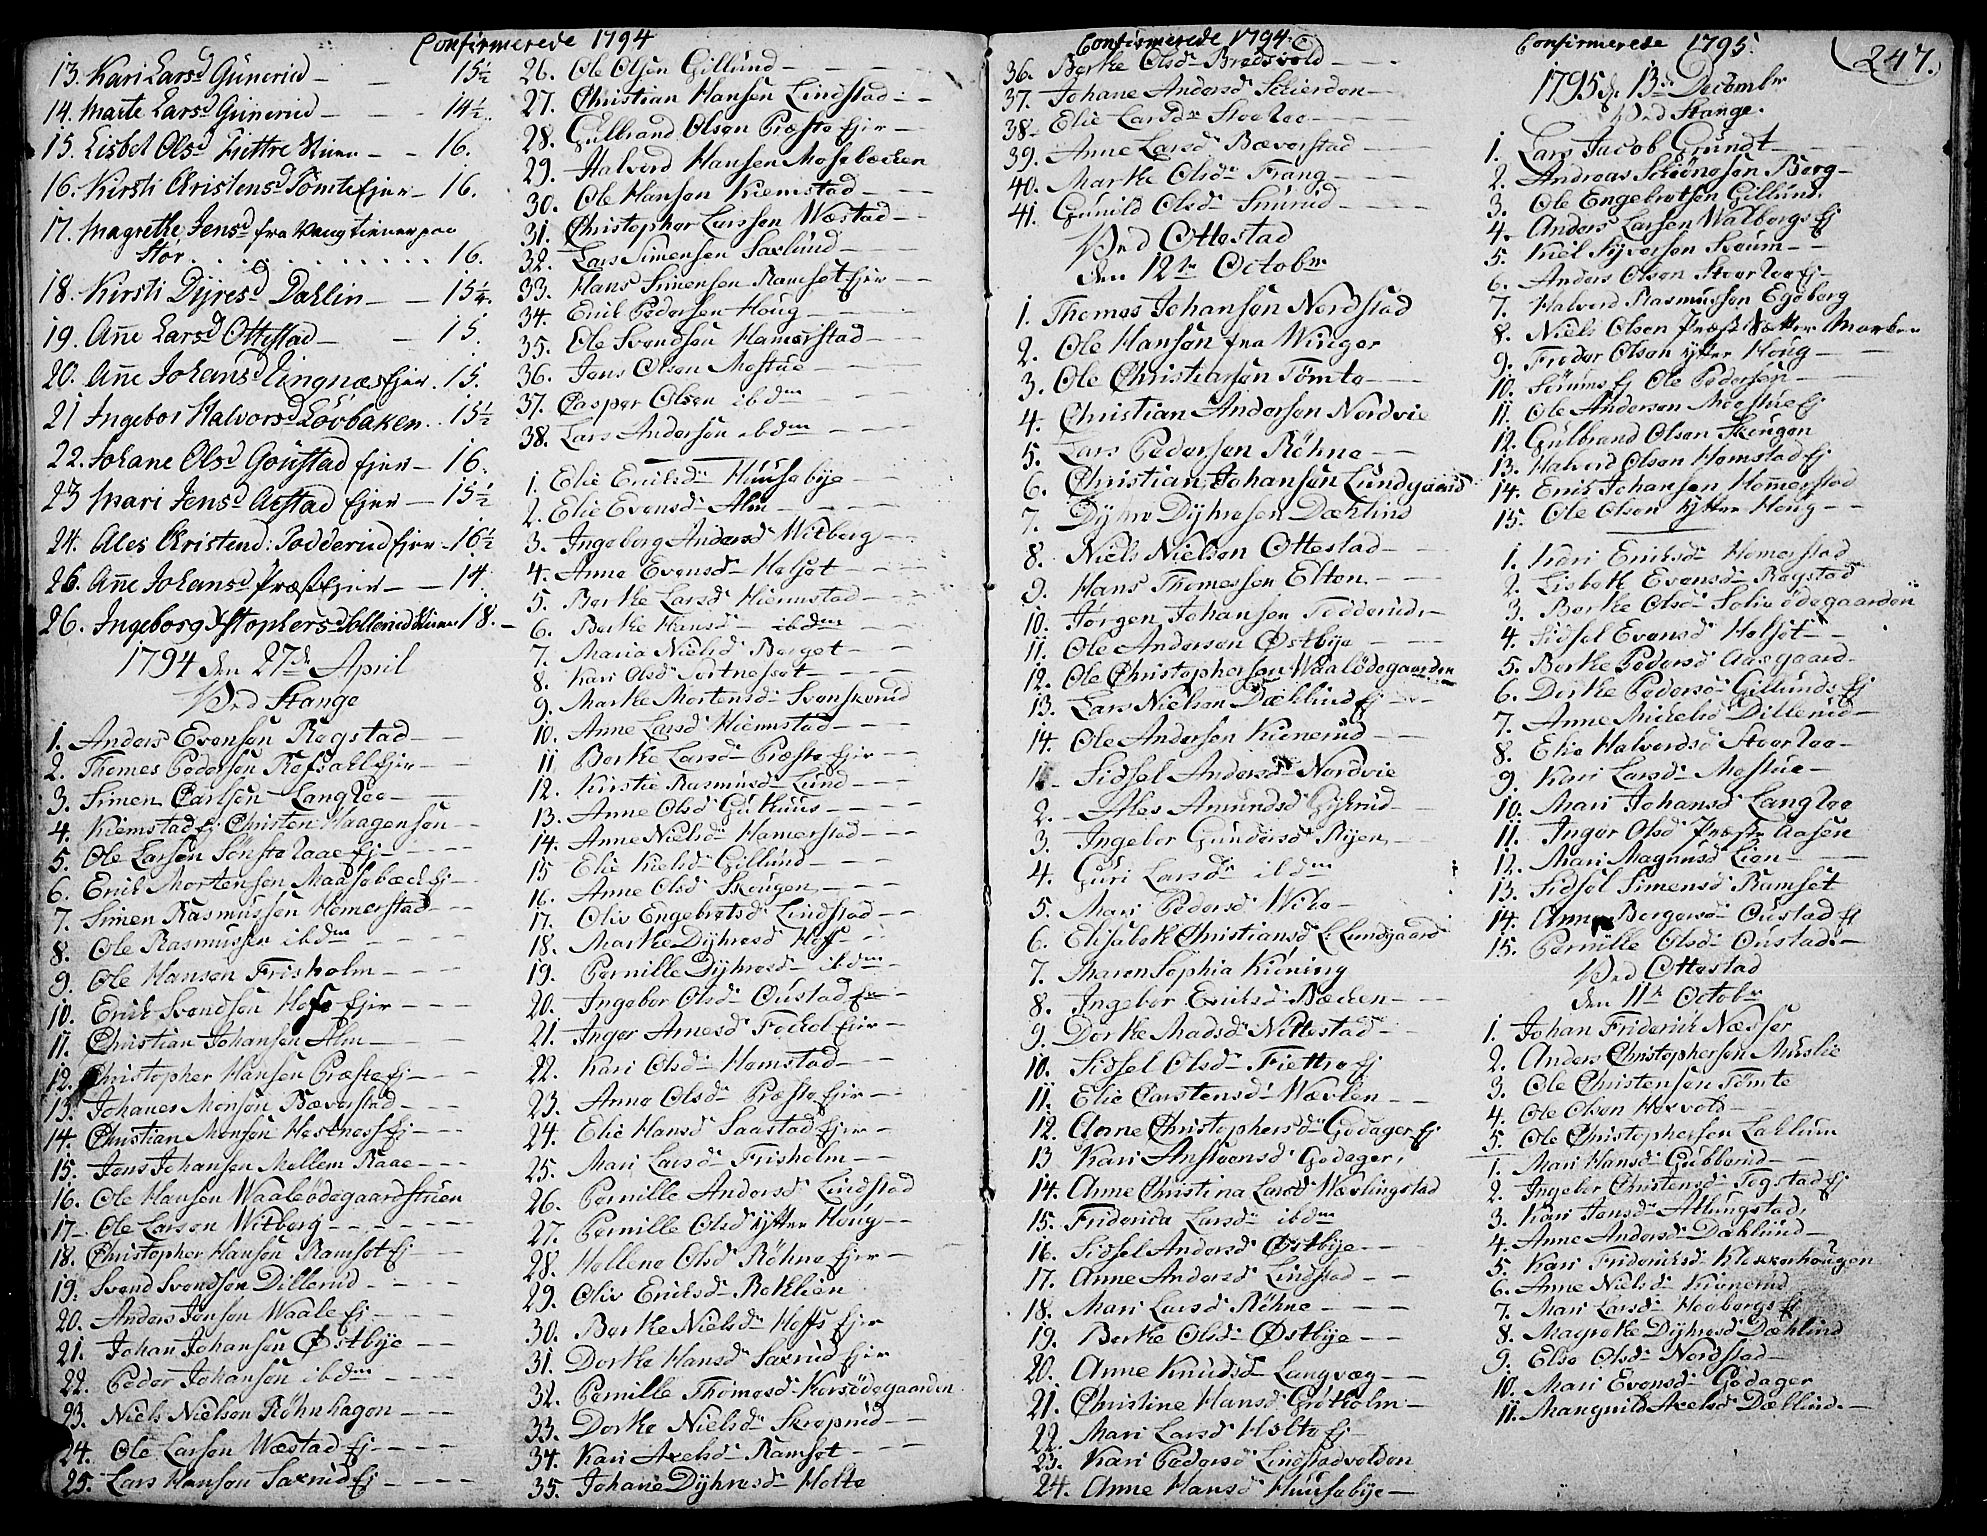 Confirmerede 1794
13. Kari Larsd Günerud — — 15½
14. Marte Larsd Günerud — — 14½
15. Lisbet Olsd Fiettre — — 16.
16. Kirsti Christensd Tomte Ejer — 16.
17. Magrethe Jensd fra Vang tiener paa
Stór . . . . . . . . . . 16.
18. Kirsti Dÿresd Dæhlin — — 15¼.
19. Añe Larsd Ottestad — — 15.
20. Añe Johansd Lingnæs Ejer. 15.
21 Ingebor Halvorsd Lövbaken . . 15½
22. Johane Olsd Goústad Ejer — 16.
23 Mari Jensd Aastad Ejer — 15½
24. Ales Christend: Todderud Ejer — 16½
26. Añe Johansd Præst Ejer — — 14.
26. Ingeborg Xstophersd 18. —
1794 den 27de April
Ved Stange
1. Anders Evensen Rogstad — —
2. Thomes Pedersen Refsahl Ejer — —
3. Simen Carlsen Langloe — —
4. Kiemstad Ej Christen Haagensen — —
5. Ole Larsen Sönste Raae Ej — — —
6. Erik Mortensen Maasebæck Ej —
7. Simen Rasmussen Homerstad — —
8. Ole Rasmussen ibdm — — — —
9. Ole Hansen Frisholm — — — —
10. Erik Svendsen Hofs Ejer — — —
11. Christian Johansen Alm — — —
12. Christopher Hansen Præste Ej — — —
13. Johanes Monsen Bæverstad — — —
14. Christian Monsen Hestness Ej — — —
15. Jens Johansen Mellem Raae — — —
16. Ole Hansen Waaleödegaard Stuen
17. Ole Larsen Witberg — — — — —
18. Christopher Hansen Ramset Ej — — —
19. Svend Svendsen Dillerud — — — —
20. Anders Jensen Waale Ej — — — —
21. Johan Johansen Østbÿe — — —
22. Peder Johansen ibdm — — — —
23. Niels Nielsen Röhnhagen — — —
24. Ole Larsen Wæstad Ej — — — —
25. Lars Hansen Saxrud Ej — — — —
26. Ole Olsen Gillund — — — —
27. Christian Hansen Lindstad — —
28. Gulbrand Olsen Præste Ejer — —
29. Halvord Hansen Mosebæcken
30. Ole Hansen Kiemstad — — —
31. Christopher Larssen Wæstad — —
32. Lars Simensen Saxlund — — —
33. Hans Simensen Ramset Ejer — —
34. Erik Pedersen Houg — — — —
35. Ole Svendsen Hamerstad — — —
36. Jens Olsen Mostue — — — —
37. Casper Olsen ibdm — — —
38. Lars Andersen ibdm — — — —
1. Elie Eriksdr Huusebÿe — — —
2. Elie Evensd Alm — — —
3. Ingeborg Andersd Witberg — —
4. Anne Evensd Helset — — —
5. Berthe Larsd Hiemstad — — —
6. Berthe Hansd ibdm — — —
7. Maria Nielsd Berget — — —
8. Kari Olsd Tortneset — — —
9. Marthe Mortensd Svenskerud
10. Anne Larsd Hiemstad — — —
11 Berthe Larsd Præste Ejer — —
12. Kirstie Rasmusd Lund — — —
13. Anne Olsd Guthuus — — — —
14. Anne Nielsd Hamerstad — — —
15 Elie Kielsd Gillund — — — —
16. Anne Olsd Skougen — — —
17. Oliv Engebretsd Lindstad — —
18. Marthe Dÿhresd Hof — — —
19. Pernille Dÿhresd ibdm — —
20. Ingebor Olsd Oustad Ejr — —
21. Inger Arnesd Fockel Ejer — —
22. Kari Olsd Homstad — — —
23. Anne Olsd Præste Ejer — — —
24. Elie Hansd Saastad Ejer — —
25. Mari Larsd Frisholm — — —
26. Pernille Andersd Lindstad
27. Pernille Olsd Ÿtter Houg — —
28. Hellene Olsd Röhne Ejer — —
29. Oliv Eriksd Bekliën
30. Berthe Nielsd Hofs Ejer
31. Dorthe Hansd Saxrud Ejer
32. Pernille Thomesd Korsödegaarden
33. Dorthe Nielsd Skreprud — —
34. Kari Axelsd Ramset — — —
35. Johane Dÿhresd Holte
Confirmerede 1794.
36. Berthe Olsd Bredsvold — — —
37. Johane Andersd Skierden — — —
38. Elie Larsdr Stor Loe — — —
39. Anne Larsd Bæverstad — — —
40. Marthe Olsd Frang — — —
41. Gunild Olsd Snürud — — —
Ved Ottestad
den 12te Octobr
1. Thomes Johansen Nordstad
2. Ole Hansen fra Winger
3. Ole Christiansen Tömte — —
4. Christian Andersen Nordvie
5. Lars Pedersen Röhne — —
6. Christian Johansen Lundgaard
7. Dÿhre Dÿhresen Dæhlind
8. Niels Nielsen Ottestad — —
9. Hans Thomessen Elton — —
10. Jörgen Johansen Tödderud —
11. Ole Andersen Østbÿe — —
12. Ole Christophersen Waaleödegaarden
13. Lars Nielsen Dæhlind Ej — —
14. Ole Andersen Kienerud — —
1. Sidsel Andersdr Nordvie
2. Ales Amundsd Gÿhrud — —
3. Ingebor Gundersd Rÿen — —
4. Guri Larsdr ibdm
5. Mari Pedersd Wibe —
6. Elisabeth Christiansd L: Lundgaard
7. Maren Sophia Kiöning
8. Ingebor Eriksd Bæcken — —
9. Dorthe Madsd Nittestad — —
10. Sidsel Olsd Fiettre Ej
11. Elie Carstensd Wævlen — —
12. Anne Christophersd Godager Ej
13 Kari Anstensd Godager
14. Anne Christina Larsd Wævlingstad
15. Friderica Larsdr ibdm
16. Sidsel Andersd Østbÿe — —
17. Anne Andersd Lindstad — —
18. Mari Larsd Röhne — — —
19. Berthe Olsd Østbÿe — —
20. Anne Knudsd Langvæg — —
21. Christine Hansd Grötholm —
22. Mari Larsd Holte Ej —
23. Kari Pedersd Lindstadvolden
24. Anne Hansd Huusebÿe —
Confirmerede 1795.
247.
1795 d. 13de Decembr
Ved Stange.
1. Lars Jacob Grundt — —
2. Andreas Schöngsen Berg —
3. Ole Engebretsen Gillund
4. Anders Larsen Walbergs Ej
5. Kiel Sÿversen Skeum — —
6. Anders Olsen Stoor Loe Ej —
7. Halvord Rasmussen Egeberg
8. Niels Olsen Præst Sætter Marken
9. Freder Olsen Ÿtter Houg — —
10. Sörums Ej Ole Pedersen — —
11. Ole Andersen Moestue Ej
12. Gulbrand Olsen Skeugen
13. Halverd Olsen Homstad Ej
14. Erik Johansen Homerstad
15. Ole Olsen Ÿtter Houg — —
1. Kari Eriksdr Homerstad
2. Lisbeth Evensd Rogstad
3. Berthe Olsd Solieödegaarden
4. Sidsel Evensd Helset — —
5. Berthe Pedersd Aasgaard —
6. Dorthe Pedersd Gillunds Ej
7. Anne Mickelsd Dillerud —
8. Elie Halverdsd Stoor Loe —
9. Kari Larsd Mostue —
10. Mari Johansd Langloe
11. Inger Olsd Præste Aasen
12. Mari Magnusd Lien — —
13. Sidsel Simensd Ramset
14. Anne Bergersd Oustad Ej
15. Pernille Olsd Oustad. —
Ved Ottestad
den 11te Octobr
1. Johan Friderik Næsser
2. Anders Christophersen Muslie
3. Ole Christensen Tömte
4. Ole Olsen Hexvold —
5. Ole Christophersen Laklum
1. Mari Hansd Gubberud — —
2. Ingebor Christensd Togstad Ej
3. Kari Jensd Atlungstad
4. Anne Andersd Dæhlind —
5. Kari Frideriksd Klokkerhougen
6. Anne Nielsd Kiönerud
7. Mari Larsd Hooberg Ej
8. Magrethe Dÿhresd Dæhlind
9. Else Olsd Nordstad —
10. Mari Evensd Godager
11. Mangnild Axelsd Dæhlind. —